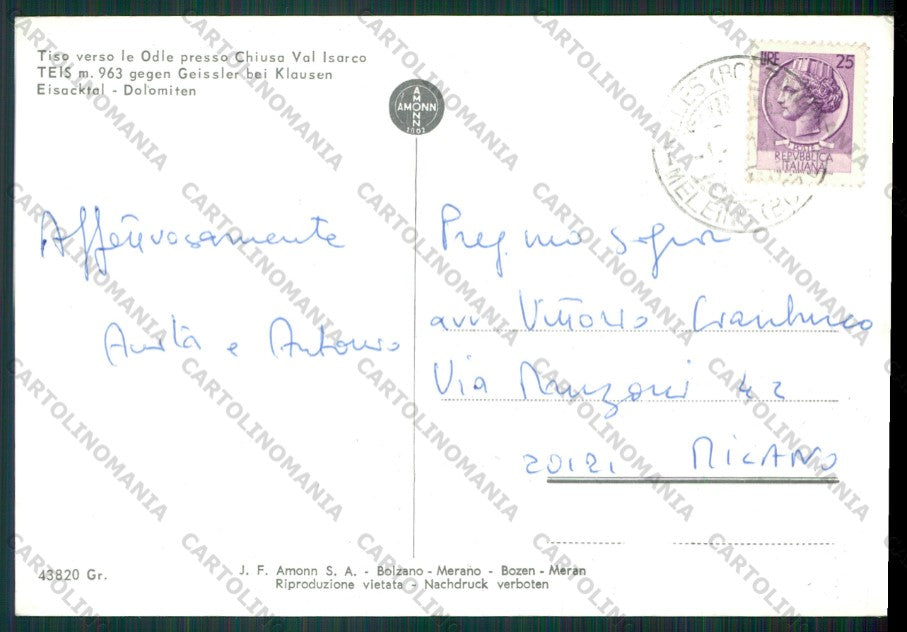 Tiso verso le Odle presso Chiusa Val Isarco
TEIS m. 963 gegen Geissler bei Klausen
Eisacktal - Dolomiten
AMONN
AMONN
1802
LIRE 25
POSTE
REPVBBLICA
ITALIANA
Affettuosamente
Anita e Antonio
Preg.mo Signor
avv Vittorio
Via Manzoni 42
20121 MILANO
43820 Gr.
J. F. Amonn S. A. - Bolzano - Merano - Bozen - Meran
Riproduzione vietata - Nachdruck verboten
CARTOLINOMANIA